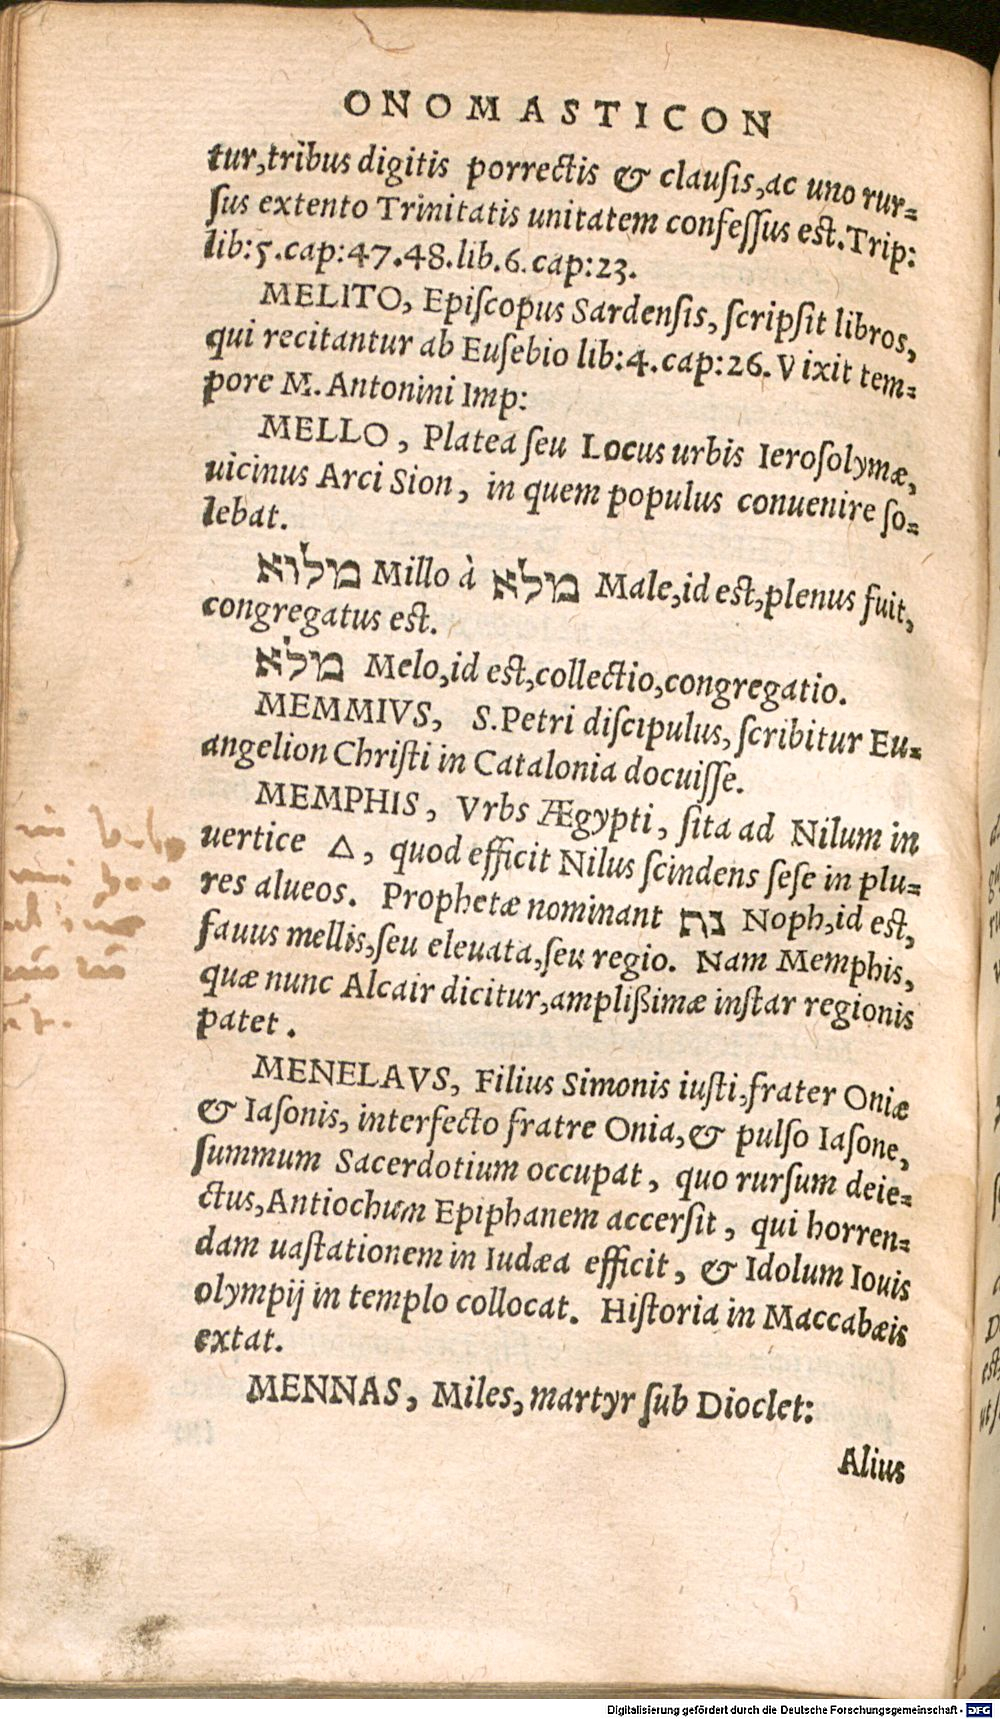 ONOMASTICON
tur, tribus digitis porrectis & clauſis, ac uno rur=
ſus extento Trinitatis unitatem confeſſus est. Trip:
lib:5.cap:47.48.lib.6.cap:23.
MELITO, Epiſcopus Sardenſis, ſcripſit libros,
qui recitantur ab Euſebio lib:4.cap:26. Vixit tem=
pore M. Antonini Imp:
MELLO, Platea ſeu Locus urbis Ieroſolymæ,
uicinus Arci Sion, in quem populus conuenire ſo=
lebat.
מלוא Millo à מלא Male, id est, plenus fuit,
congregatus est.
מלא Melo, id est, collectio, congregatio.
MEMMIVS, S. Petri diſcipulus, ſcribitur Eu=
angelion Chriſti in Catalonia docuiſſe.
MEMPHIS, Vrbs Ægypti, ſita ad Nilum in
uertice △, quod efficit Nilus ſcindens ſeſe in plu=
res alueos. Prophetæ nominant נח Noph, id est,
fauus mellis, ſeu eleuata, ſeu regio. Nam Memphis,
quæ nunc Alcair dicitur, ampliſsimæ inſtar regionis
patet.
MENELAVS, Filius Simonis iuſti, frater Oniæ
& Iaſonis, interfecto fratre Onia, & pulſo Iaſone,
ſummum Sacerdotium occupat, quo rurſum deie=
ctus, Antiochum Epiphanem accerſit, qui horren=
dam uaſtationem in Iudæa efficit, & Idolum Iouis
olympij in templo collocat. Hiſtoria in Maccabæis
extat.
MENNAS, Miles, martyr ſub Dioclet:
Alius
Digitalisierung gefördert durch die Deutsche Forschungsgemeinschaft - DFG